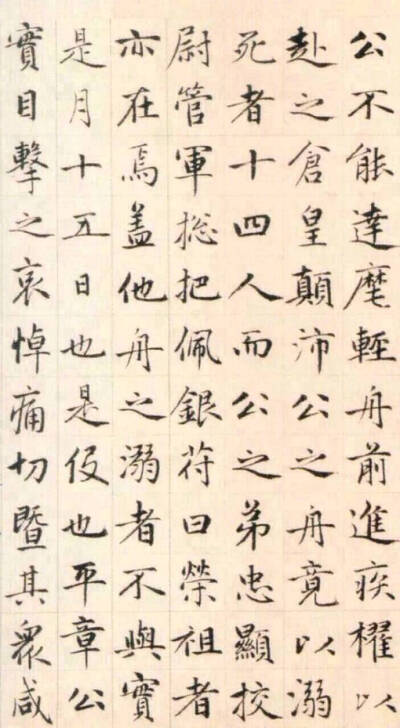 公不能達麾輕舟前進疾櫂以
赴之倉皇顛沛公之舟竟以溺
死者十四人而公之弟忠顯校
尉管軍揔把佩銀苻曰榮祖者
亦在焉盖他舟之溺者不與實
是月十五日也是伇也平章公
實目擊之哀悼痛切暨其衆咸